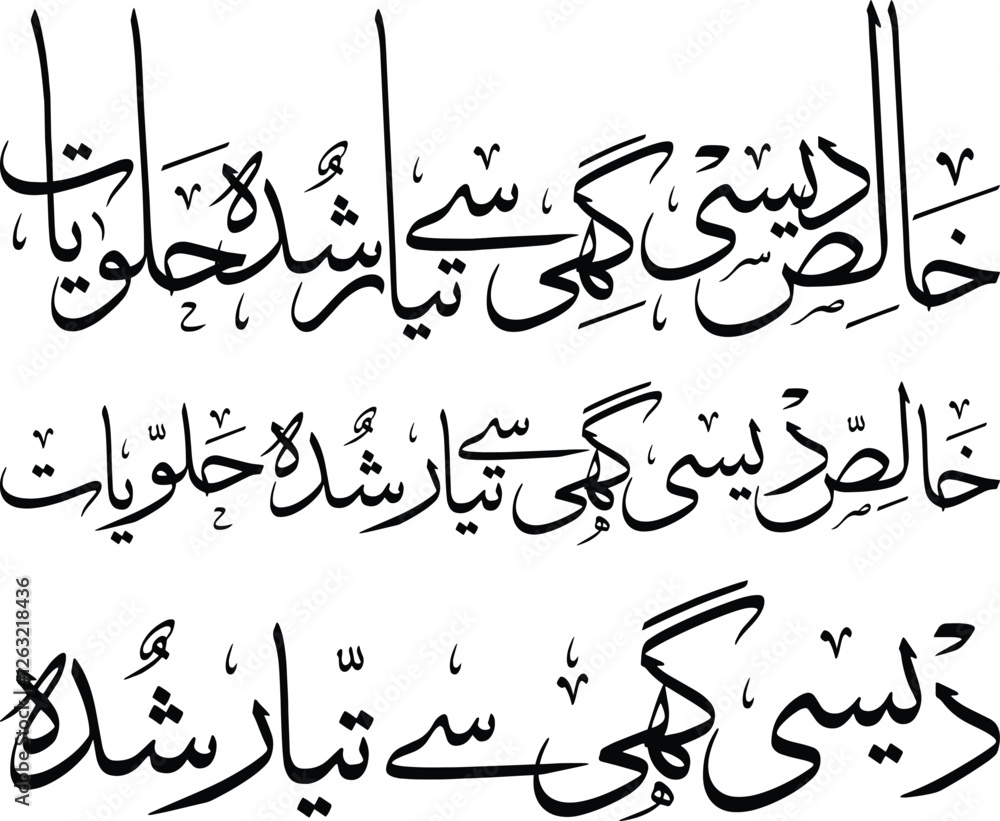 خالص دیسی گھی سے تیار شدہ حلویات
خالص دیسی گھی سے تیار شدہ حلویات
دیسی گھی سے تیار شدہ
Adobe Stock | #1263218436